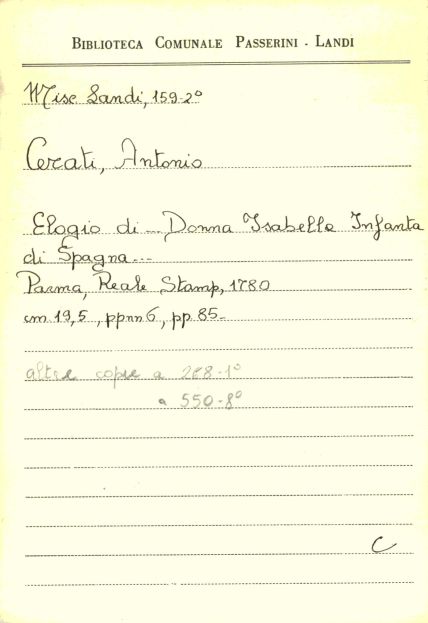 BIBLIOTECA COMUNALE PASSERINI - LANDI
Misc Landi, 159-2°
Cerati, Antonio
Elogio di ... Donna Isabella Infanta
di Spagna...
Parma, Reale Stamp, 1780
cm 19,5, ppnn 6, pp 85-
altre copie a 268-1°
a 550-8°
C